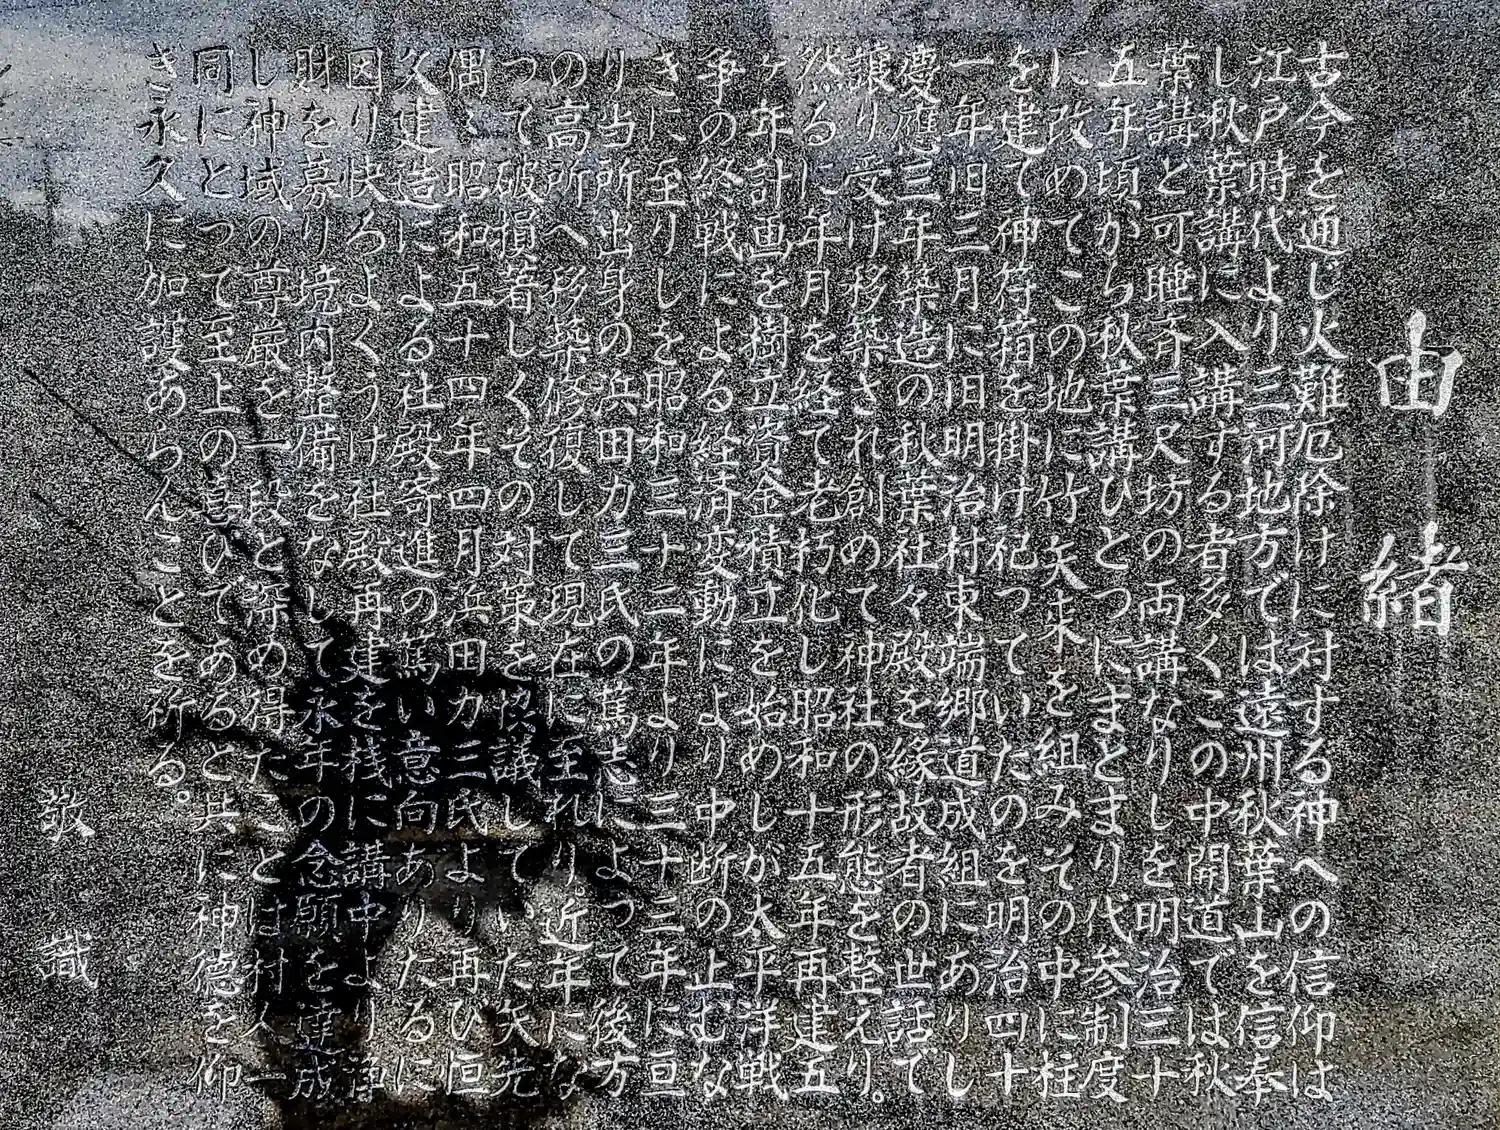 由緒
古今を通じ火難厄除けに対する神への信仰は
江戸時代より三河地方では遠州秋葉山を信奉
し秋葉講に入講する者多くこの中開道では秋
葉講と可睡斉三尺坊の両講なりしを明治三十
五年頃から秋葉講ひとつにまとまり代参制度
に改めてこの地に竹矢来を組みその中に柱
を建て神符箱を掛け祀っていたのを明治四十
一年旧三月に旧明治村東端郷道成組にありし
慶應三年築造の秋葉社々殿を縁故者の世話で
譲り受け移築され創めて神社の形態を整えり。
然るに年月を経て老朽化し昭和十五年再建五
ヶ年計画を樹立資金積立を始めしが太平洋戦
争の終戦による経済変動により中断の止むな
きに至りしを昭和三十二年より三十三年に亘
り当所出身の浜田力三氏の篤志によって後方
の高所へ移築修復して現在に至れり。近年にな
って破損著しくその対策を協議していた矢先
偶〻昭和五十四年四月浜田力三氏より再び恒
久建造による社殿寄進の篤い意向ありたるに
因り快ろよくうけ社殿再建を機に講中より浄
財を募り境内整備をなして永年の念願を達成
し神域の尊厳を一段と深め得たことは村人一
同にとって至上の喜びであると共に神徳を仰
ぎ永久に加護あらんことを祈る。
敬識